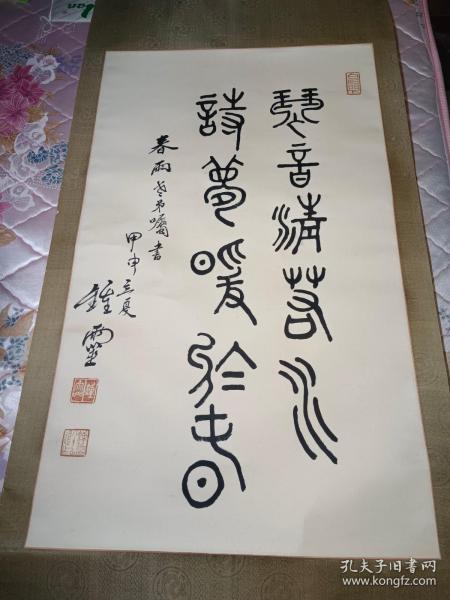 琴音清若水
詩夢暖於春
春雨老弟囑書
甲申立夏
鍾靈
孔夫子旧书网
www.kongfz.com